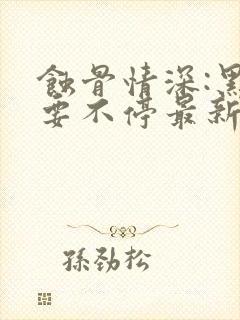 蝕骨情深:黑
要不停最新
孫劲松